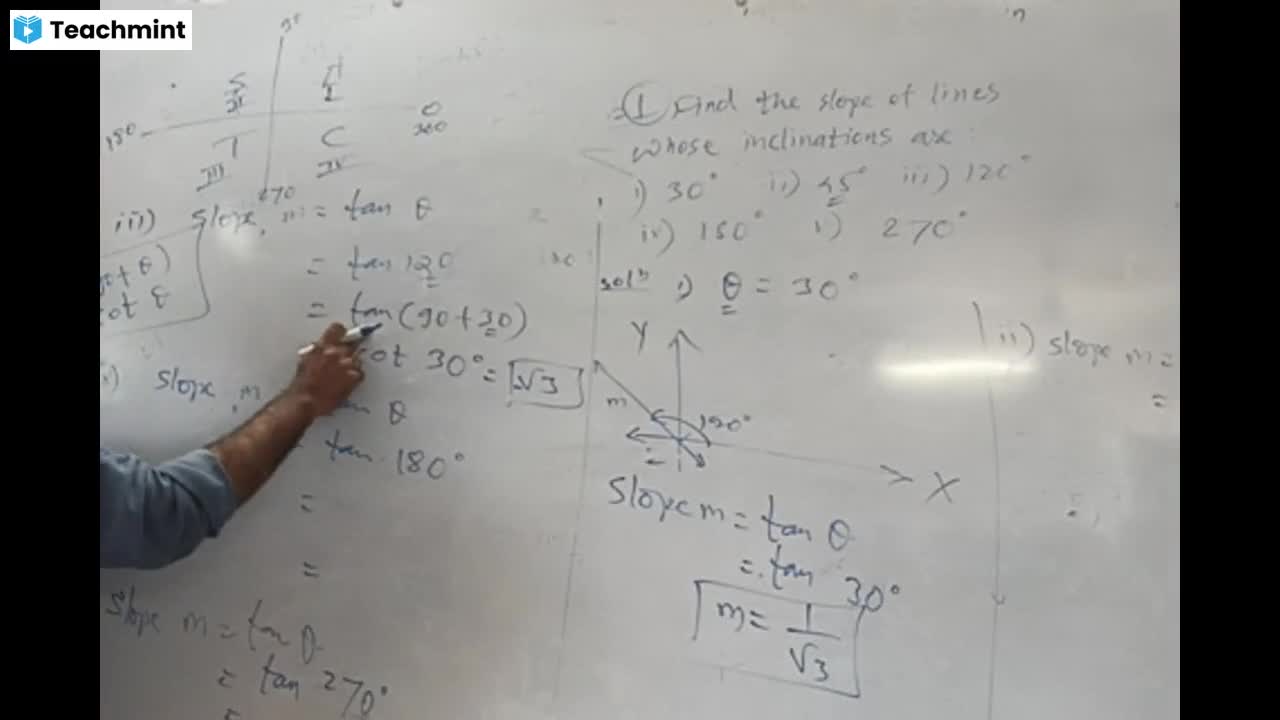 Teachmint
S
II
A
I
180
0
360
T
III
C
IV
270
iii) Slope, m = tan θ
= tan 120
= tan (90 + 30)
cot 30° = √3
Slope, m
tan θ
tan 180°
=
=
Slope m = tan θ
= tan 270°
① Find the slope of lines
whose inclinations are:
i) 30° ii) 45° iii) 120°
iv) 180° v) 270°
solⁿ i) θ = 30°
Y
m
120°
X
Slope m = tan θ
= tan 30°
m = 1/√3
ii) slope m =
=